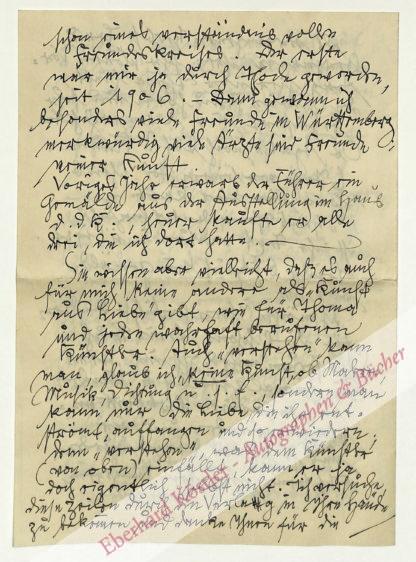 schon eines verständnisvollen
Freundeskreises. Der erste
war mir ja durch Thode geworden,
seit 1906. – Dann gewann ich
besonders viele Freunde in Württemberg,
merkwürdig viele Ärzte sind Freunde
meiner Kunst.
Voriges Jahr erwarb der Führer ein
Gemälde aus der Ausstellung im Haus
d. d. K. heuer kaufte er alle
drei, die ich dort hatte.
Sie wissen aber vielleicht, daß es auch
für mich keine andere als Kunst
"aus Liebe" gibt, wie für Thoma
und jeden wahrhaft berufenen
Künstler. Auch "verstehen" kann
man, glaub ich, keine Kunst, ob Malerei,
Musik, Dichtung u. s. f., sondern man
kann nur die Liebe, die ihr ent-
strömt, auffangen und so erwiedern;
denn "verstehen", was dem Künstler
von oben einfällt, kann er ja
doch eigentlich selbst nicht. – Ich versuche,
diese Zeilen durch den Verlag in Ihre Hände
zu bekommen und danke Ihnen für die
Eberhard Köstler - Autographen & Bücher